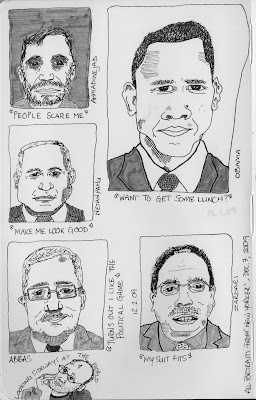 "PEOPLE SCARE ME"
AHMADINEJAD
"WANT TO GET SOME LUNCH?"
OBAMA
"MAKE ME LOOK GOOD"
NETANYAHU
"TURNS OUT I LIKE THE
POLITICAL GAME"
12.2.09
ABBAS
"MY SUIT FITS"
ZARDARI
AT THE
ALL PORTRAITS FROM "NEW YORKER", DEC 7, 2009